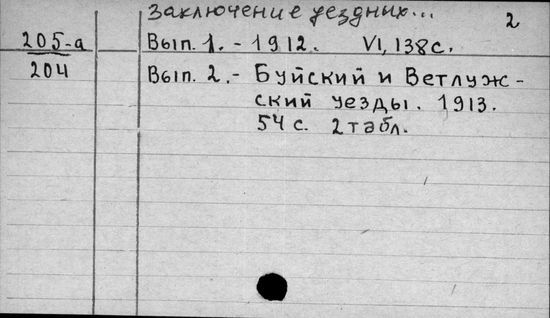 Заключение уездных... 2
205-а Вып. 1. - 1912. VI, 138 с.
204 Вып. 2. - Буйский и Ветлуж-
ский уезды. 1913.
54 с. 2 табл.